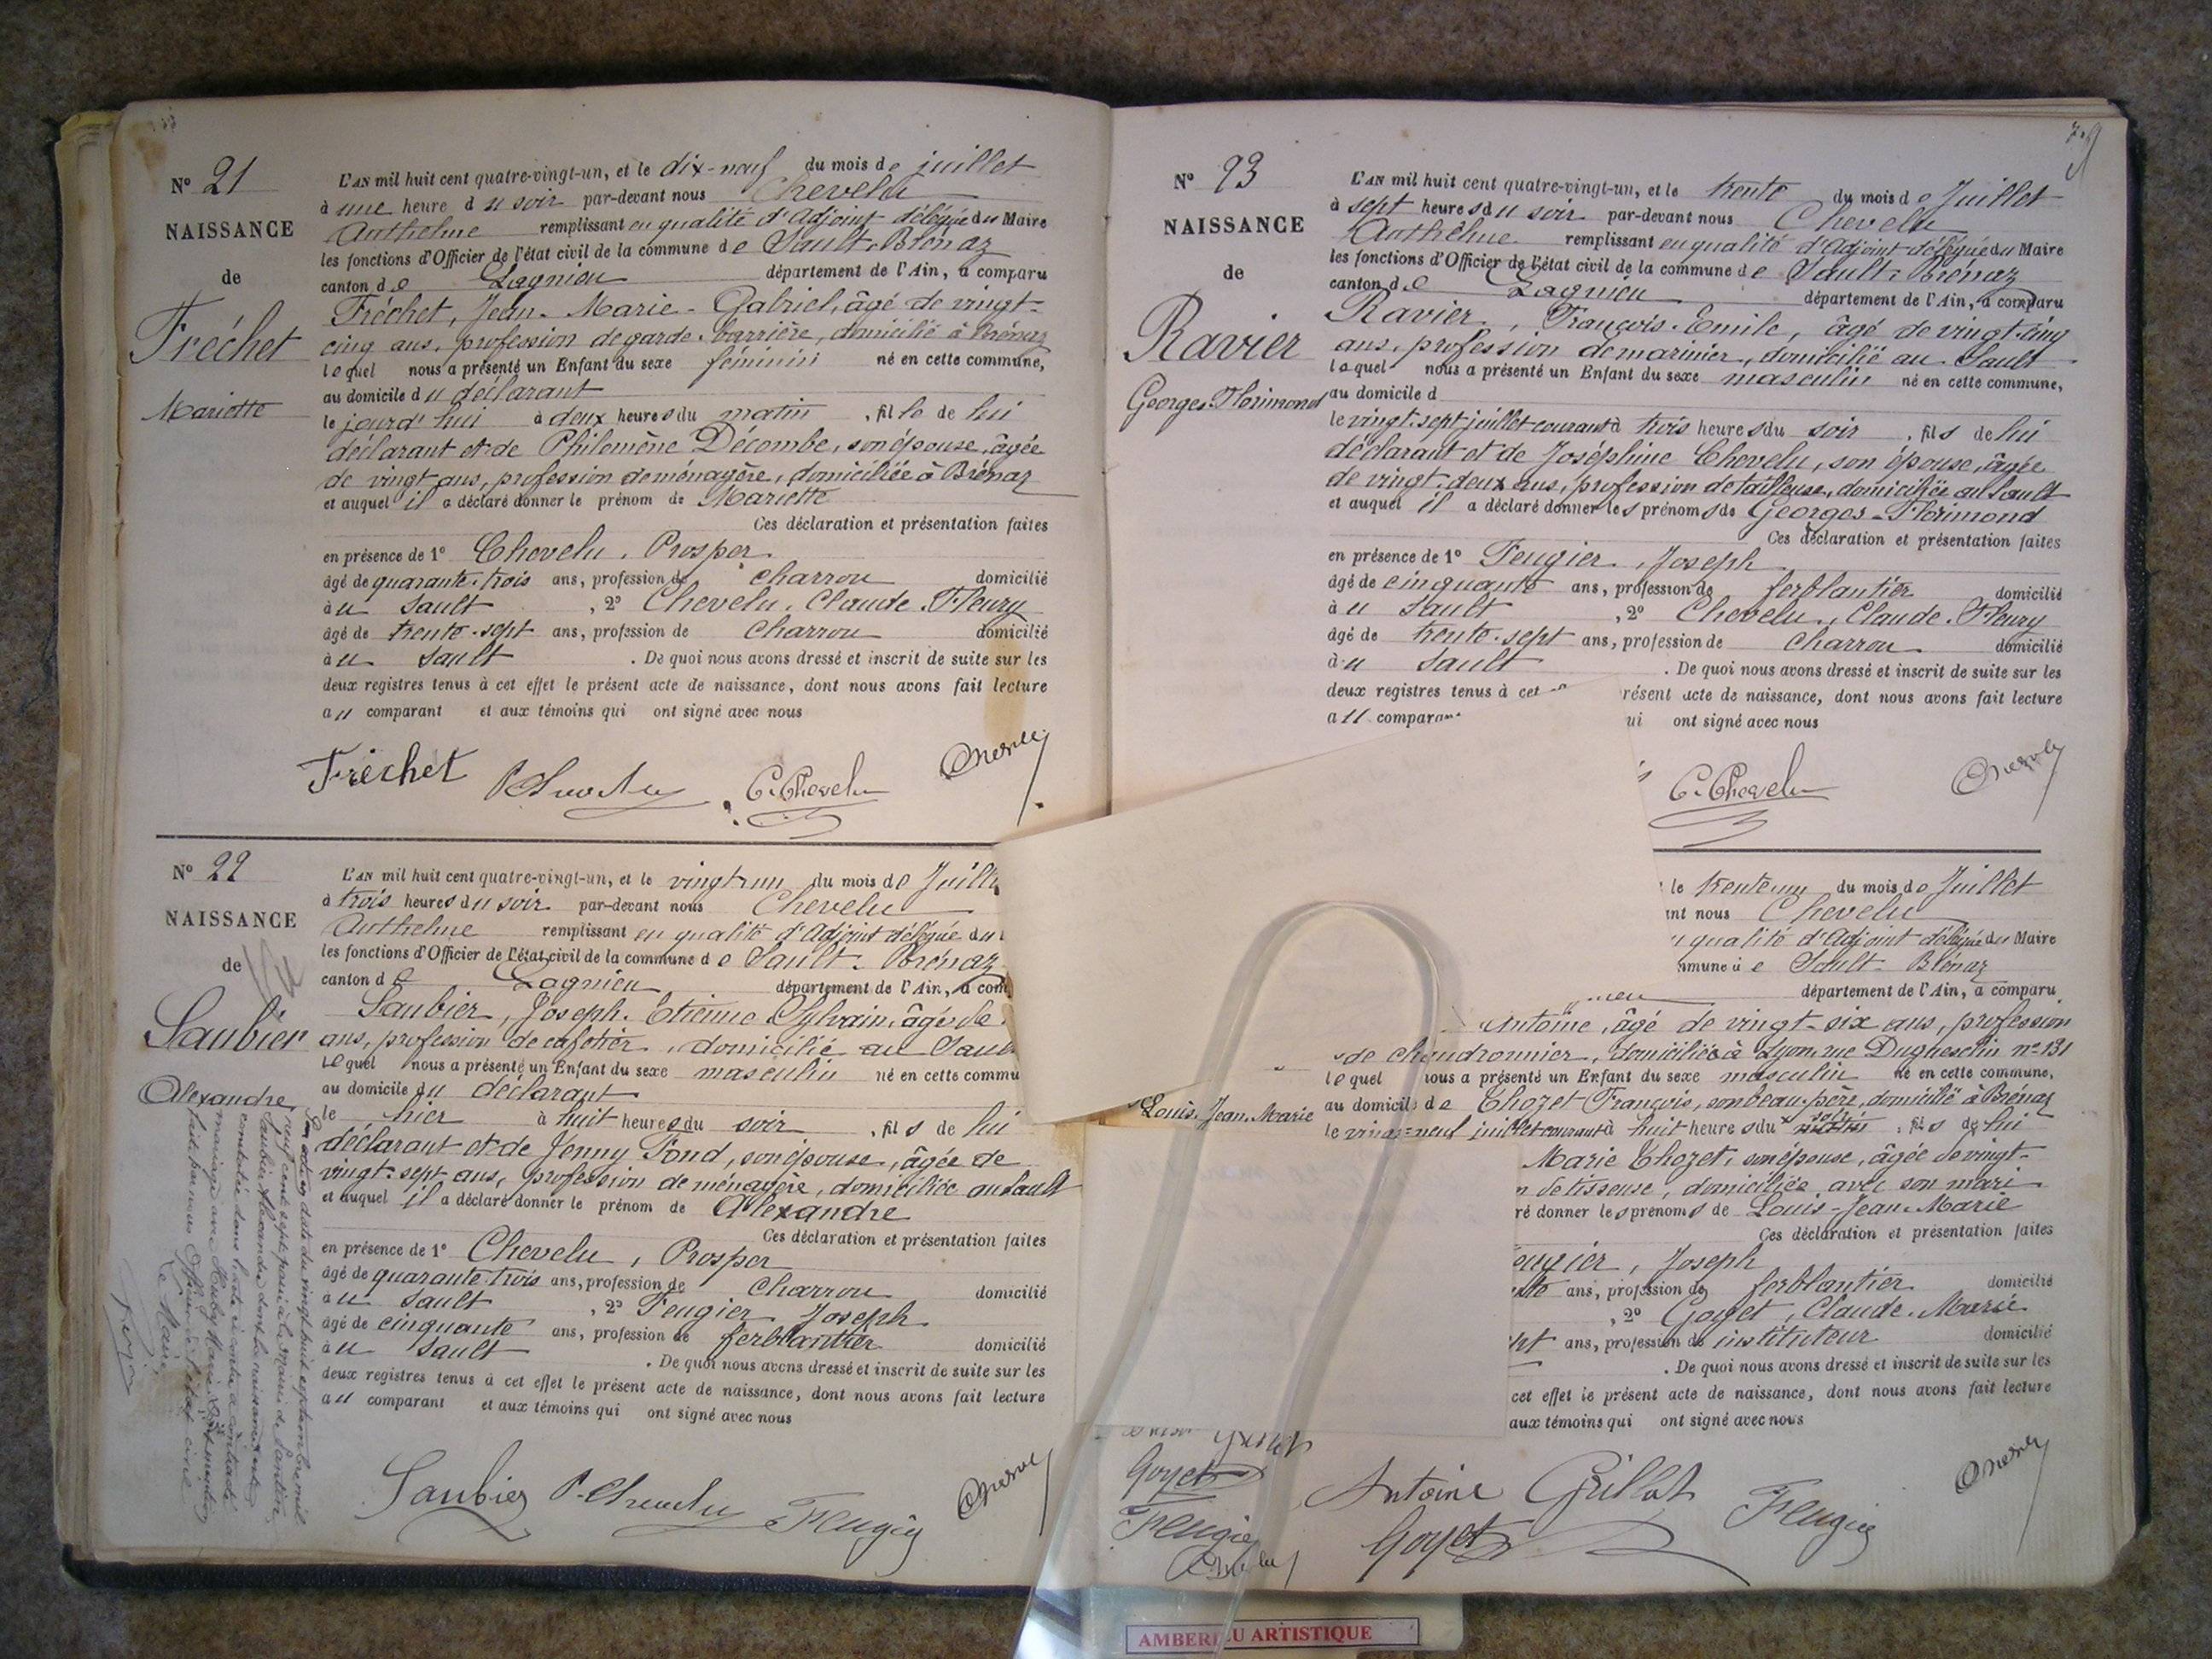 N° 21
NAISSANCE
de
Fréchet
Mariette
L'AN mil huit cent quatre-vingt-un, et le dix-neuf du mois de juillet
à une heure du soir par-devant nous Chevelu
Anthelme remplissant en qualité d'Adjoint délégué du Maire
les fonctions d'Officier de l'état civil de la commune de Sault-Brénaz
canton de Lagnieu département de l'Ain, a comparu
Fréchet, Jean-Marie-Gabriel, âgé de vingt-
cinq ans, profession de garde-barrière, domicilié à Brénaz
lequel nous a présenté un Enfant du sexe féminin né en cette commune,
au domicile du déclarant
le jourd'hui à deux heures du matin, fille de lui
déclarant et de Philomène Décombe, son épouse, âgée
de vingt ans, profession de ménagère, domiciliée à Brénaz
et auquel il a déclaré donner le prénom de Mariette
Ces déclaration et présentation faites
en présence de 1° Chevelu, Prosper
âgé de quarante-trois ans, profession de charron domicilié
au Sault, 2° Chevelu, Claude-Fleury
âgé de trente-sept ans, profession de charron domicilié
au Sault. De quoi nous avons dressé et inscrit de suite sur les
deux registres tenus à cet effet le présent acte de naissance, dont nous avons fait lecture
au comparant et aux témoins qui ont signé avec nous
Fréchet P. Chevelu C. Chevelu
N° 22
NAISSANCE
de
Saubier
Alexandre
L'AN mil huit cent quatre-vingt-un, et le vingt-un du mois de Juill
à trois heures du soir par-devant nous Chevelu
Anthelme remplissant en qualité d'Adjoint délégué du
les fonctions d'Officier de l'état civil de la commune de Sault-Brénaz
canton de Lagnieu département de l'Ain, a com
Saubier, Joseph-Etienne-Sylvain, âgé de
ans, profession de cafetier, domicilié au Saul
lequel nous a présenté un Enfant du sexe masculin né en cette commu
au domicile du déclarant
le hier à huit heures du soir, fils de lui
déclarant et de Jenny Fond, son épouse, âgée de
vingt-sept ans, profession de ménagère, domiciliée au Sault
et auquel il a déclaré donner le prénom de Alexandre
Ces déclaration et présentation faites
en présence de 1° Chevelu, Prosper
âgé de quarante-trois ans, profession de charron domicilié
au Sault, 2° Feugier, Joseph
âgé de cinquante ans, profession de ferblantier domicilié
au Sault. De quoi nous avons dressé et inscrit de suite sur les
deux registres tenus à cet effet le présent acte de naissance, dont nous avons fait lecture
au comparant et aux témoins qui ont signé avec nous
Saubier P. Chevelu Feugier
N° 23
NAISSANCE
de
Ravier
Georges-Florimond
L'AN mil huit cent quatre-vingt-un, et le trente du mois de Juillet
à sept heures du soir par-devant nous Chevelu
Anthelme remplissant en qualité d'Adjoint délégué du Maire
les fonctions d'Officier de l'état civil de la commune de Sault-Brénaz
canton de Lagnieu département de l'Ain, a comparu
Ravier, François-Emile, âgé de vingt-cinq
ans, profession de marinier, domicilié au Sault
lequel nous a présenté un Enfant du sexe masculin né en cette commune,
au domicile d
le vingt-sept juillet courant à trois heures du soir, fils de lui
déclarant et de Joséphine Chevelu, son épouse, âgée
de vingt-deux ans, profession de tailleuse, domiciliée au Sault
et auquel il a déclaré donner les prénoms de Georges-Florimond
Ces déclaration et présentation faites
en présence de 1° Feugier, Joseph
âgé de cinquante ans, profession de ferblantier domicilié
au Sault, 2° Chevelu, Claude-Fleury
âgé de trente-sept ans, profession de charron domicilié
au Sault. De quoi nous avons dressé et inscrit de suite sur les
deux registres tenus à cet résent acte de naissance, dont nous avons fait lecture
au comparan ui ont signé avec nous
C. Chevelu
le trente-un du mois de Juillet
nt nous Chevelu
qualité d'Adjoint délégué du Maire
mmune de Sault-Brénaz
département de l'Ain, a comparu
Antoine, âgé de vingt-six ans, profession
de chaudronnier, domicilié à Lyon, rue Duguesclin n° 131
lequel nous a présenté un Enfant du sexe masculin né en cette commune,
Louis-Jean-Marie
au domicile de Chozet François, son beau-père, domicilié à Brénaz
le vingt-neuf juillet courant à huit heures du soir, fils de lui
Marie Chozet, son épouse, âgée de vingt-
de tisseuse, domiciliée avec son mari
ré donner les prénoms de Louis-Jean-Marie
Ces déclaration et présentation faites
eugier, Joseph
ans, profession de ferblantier domicilié
, 2° Goyet, Claude-Marie
pt ans, profession de instituteur domicilié
. De quoi nous avons dressé et inscrit de suite sur les
cet effet le présent acte de naissance, dont nous avons fait lecture
aux témoins qui ont signé avec nous
Goyet
Feugier
Antoine Grillat Feugier
Goyet
AMBERIEU ARTISTIQUE